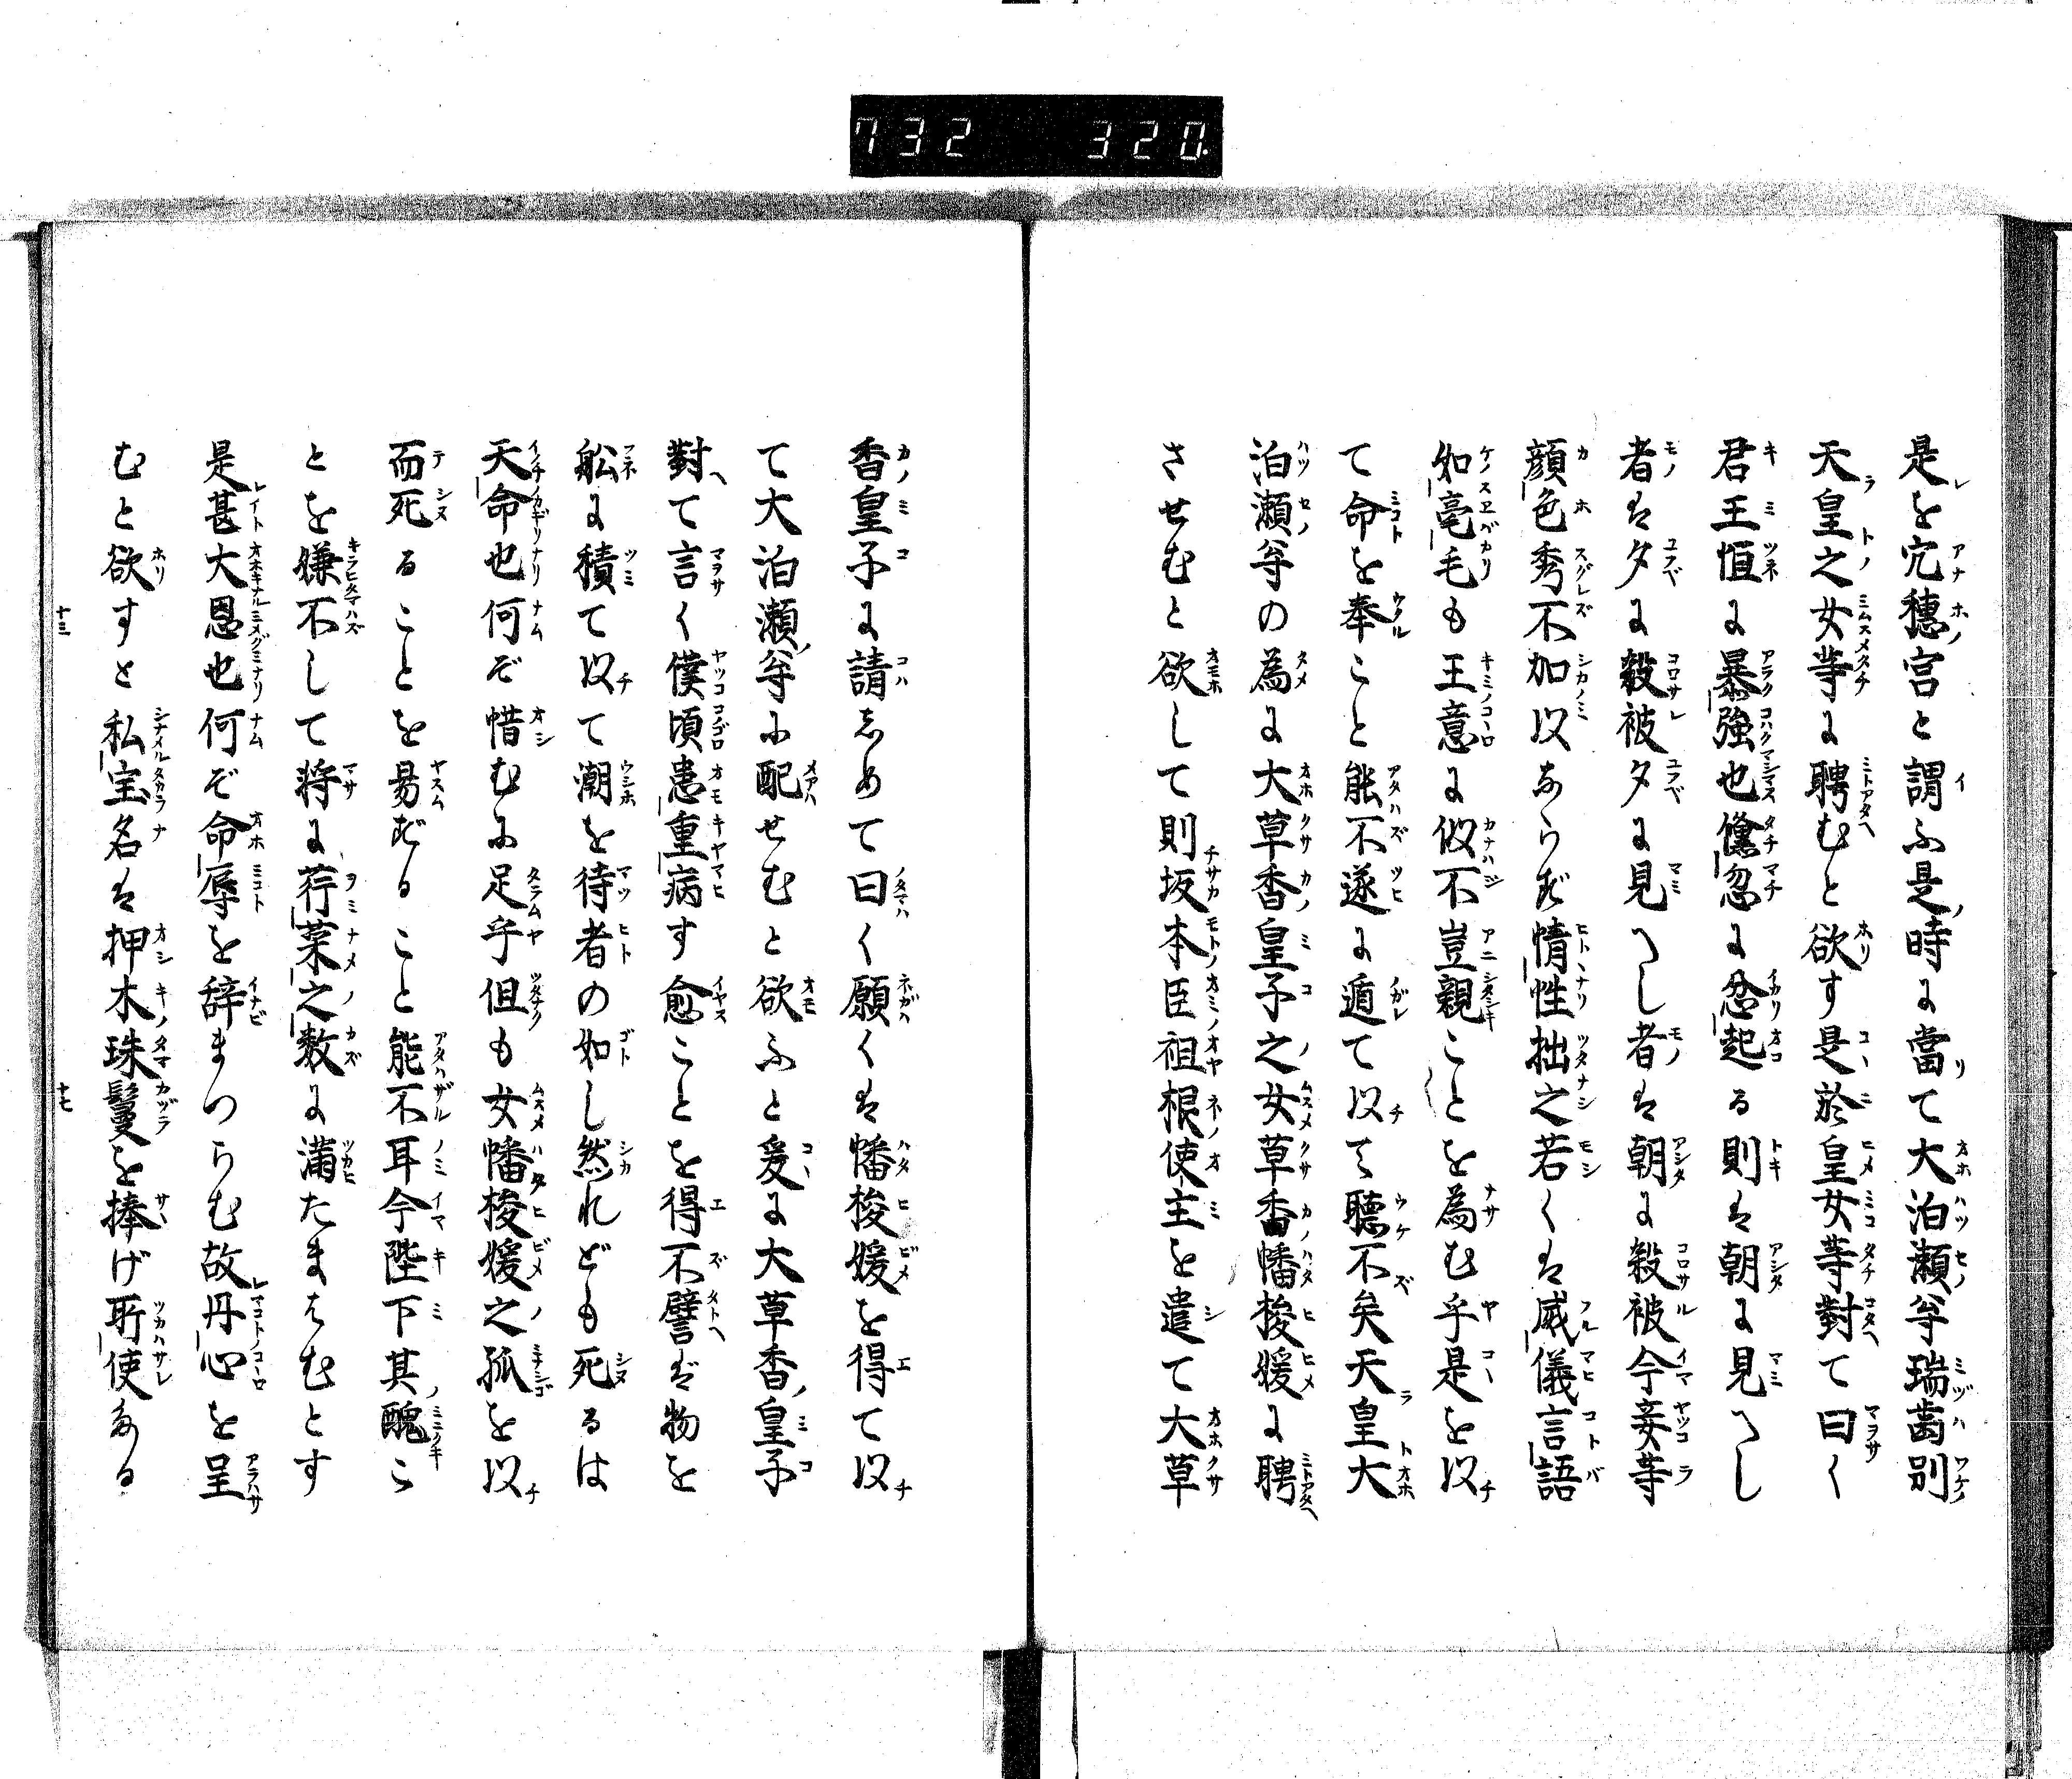 732 320
是を宂穂宮と謂ふ是時に當て大泊瀬尊瑞歯別
天皇之女等に聘むと欲す是於皇女等對て曰く
君王恒に暴強也儵忽に忿起る則は朝に見へし
者は夕に殺被夕に見へし者は朝に殺被今妾等
顔色秀不加以ならず情性拙之若くは威儀言語
如毫毛も王意に似不豈親ことを為む乎是を以
て命を奉こと能不遂に遁て以て聴不矣天皇大
泊瀬尊の為に大草香皇子之女草香幡梭媛に聘
させむと欲して則坂本臣祖根使主を遣て大草
香皇子に請しめて曰く願くは幡梭媛を得て以
て大泊瀬尊に配せむと欲ふと爰に大草香皇子
對て言く僕頃患重病す愈ことを得不譬ば物を
舩に積て以て潮を待者の如し然れども死るは
天命也何ぞ惜むに足乎但も女幡梭媛之孤を以
而死ることを易ざること能不耳今陛下其醜こ
とを嫌不して将に荇菜之数に満たまはむとす
是甚大恩也何ぞ命辱を辞まつらむ故丹心を呈
むと欲すと私宝名は押木珠鬘を捧げ所使なる